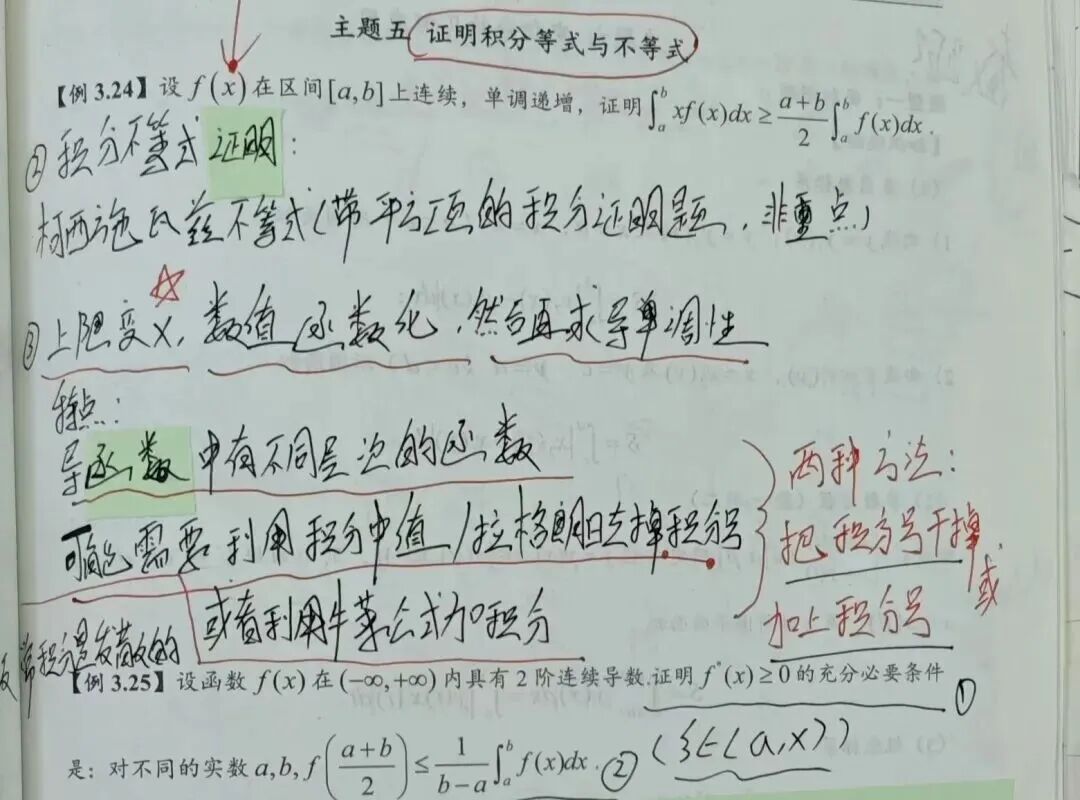 主题五 证明积分等式与不等式
【例 3.24】设 f(x) 在区间[a,b]上连续，单调递增，证明∫_a^b xf(x)dx ≥ (a+b)/2 ∫_a^b f(x)dx.
② 积分不等式证明：
柯西施瓦兹不等式(带平方项的积分证明题，非重点)
③ 上限变x，数值函数化，然后再求导单调性
特点：
导函数中有不同层次的函数
可能需要利用积分中值/拉格朗日去掉积分号
或者利用牛莱公式加积分
两种方法：
把积分号干掉或
加上积分号
常积分是发散的
【例 3.25】设函数 f(x) 在 (-∞,+∞) 内具有 2 阶连续导数.证明 f"(x)≥0 的充分必要条件 ①
是：对不同的实数 a,b, f((a+b)/2) ≤ 1/(b-a) ∫_a^b f(x)dx. ② (ξ∈(a,x))